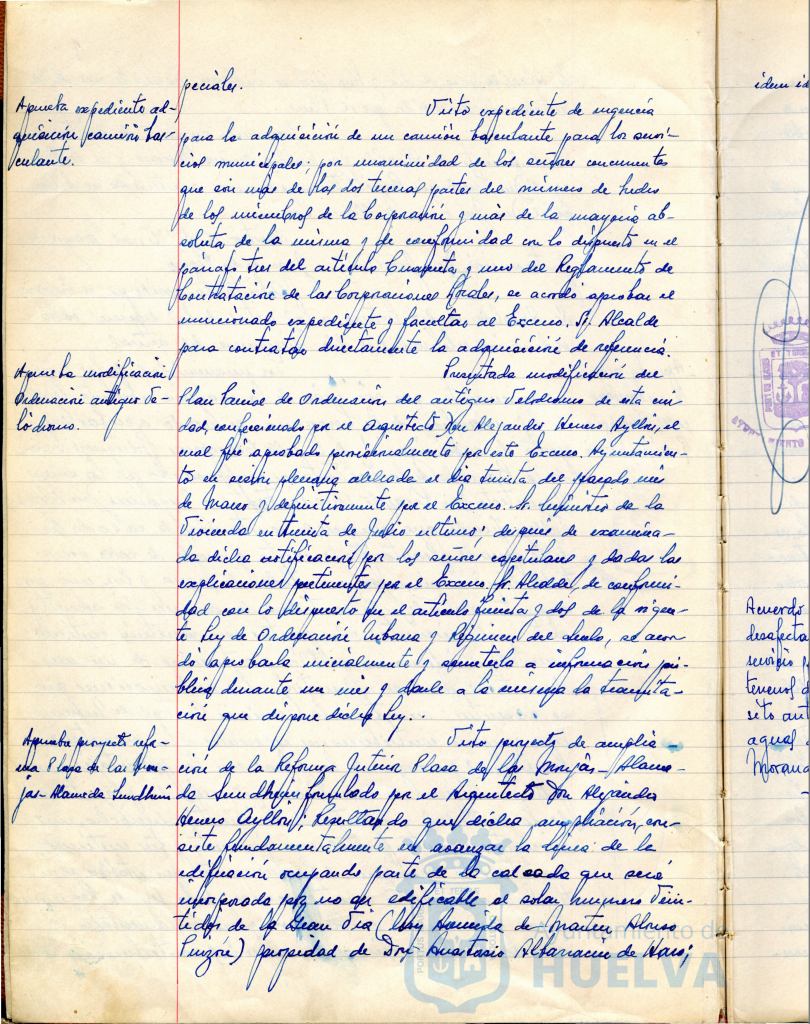 peciales.
Aprueba expediente ad-
quisición camión bas-
culante.
Visto expediente de urgencia
para la adquisición de un camión basculante para los servi-
cios municipales; por unanimidad de los señores concurrentes
que son más de las dos terceras partes del número de hecho
de los miembros de la Corporación y más de la mayoría ab-
soluta de la misma y de conformidad con lo dispuesto en el
párrafo tres del artículo Cuarenta y uno del Reglamento de
Contratación de las Corporaciones Locales, se acordó aprobar el
mencionado expediente y facultar al Excmo. Sr. Alcalde
para contratar directamente la adquisición de referencia.
Aprueba modificación
Ordenación antiguo Ve-
lódromo.
Presentada modificación del
Plan Parcial de Ordenación del antiguo Velódromo de esta ciu-
dad, confeccionado por el Arquitecto Don Alejandro Herrero Ayllón, el
cual fué aprobado provisionalmente por este Excmo. Ayuntamien-
to en sesión plenaria celebrada el día treinta del pasado mes
de Marzo y definitivamente por el Excmo. Sr. Ministro de la
Vivienda en treinta de Julio último; después de examina-
da dicha notificación por los señores capitulares y dadas las
explicaciones pertinentes por el Excmo. Sr. Alcalde, de conformi-
dad con lo dispuesto en el artículo treinta y dos de la vigen-
te Ley de Ordenación Urbana y Régimen del Suelo, se acor-
dó aprobarla inicialmente y someterla a información pú-
blica durante un mes y darle a la misma la tramita-
ción que dispone dicha Ley.
Aprueba proyecto refor-
ma Plaza de las Mon-
jas-Alameda Sundheim
Visto proyecto de amplia
ción de la Reforma Interior Plaza de las Monjas-Alame-
da Sundheim formulado por el Arquitecto Don Alejandro
Herrero Ayllón; Resultando que dicha ampliación, con-
siste fundamentalmente en avanzar la línea de la
edificación ocupando parte de la calzada que será
incorporada por no ser edificable el solar número Vein-
tidós de la Gran Vía (hoy Avenida de Martín Alonso
Pinzón) propiedad de Don Anastasio Albarracín de Haro;
idem id
Acuerdo
desafecta
servicio p
terrenos d
sito ant
aguas
Morana
Ayuntamiento de
HUELVA